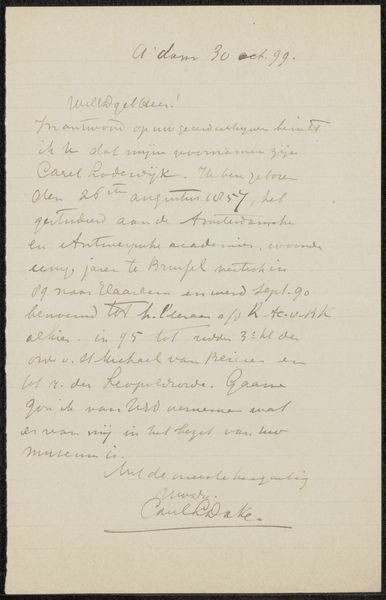 A'dam 30 oct. 99.
WelEdgeb Heer!
In antwoord op uw geeerd schrijven bericht
ik U dat mijne voornamen zijn
Carel Lodewijk. Ik ben geboren
den 26ste augustus 1857, heb
gestudeerd aan de Amsterdamsche
en Antwerpsche academies, woonde
eenige jaren te Brussel vertrok in
89 naar Blaricum en werd Sept. 90
benoemd tot h. Leeraar a/d R. Ac. v. BK
alhier. in 95 tot ridder 3e kl der
orde v. St Michael van Beieren en
tot r. der Leopoldsorde. Gaarne
zou ik van UEd vernemen wat
er van mij in het bezit van uw
museum is.
Met de meeste hoogachting
Uwdr.
Carel L Dake.